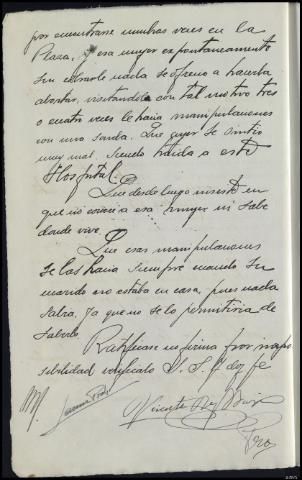 por encontrarse muchas veces en la
Plaza, y esa mujer espontaneamente
sin cobrarle nada se ofreció a hacerla
abortar, visitandola con tal motivo tres
o cuatro veces le hacia manipulaciones
con una sonda. Que ayer se sintio
muy mal, siendo traida a este
Hospital.
Que desde luego insiste en
que no conocia a esa mujer ni sabe
donde vive.
Que esas manipulaciones
se las hacia siempre cuando su
marido no estaba en casa, pues nada
sabia, ya que no se lo permitiria de
saberlo.
Ratificase no firma por impo
sibilidad verificarlo S.S. y doy fe
Vicente